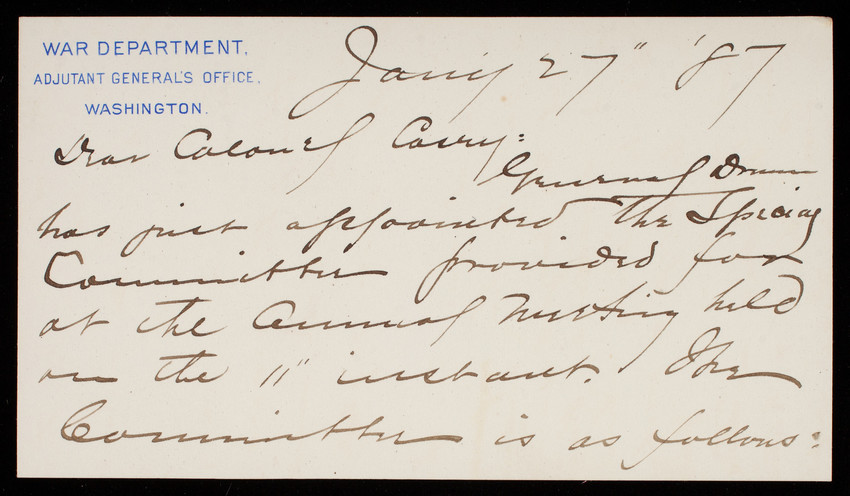 WAR DEPARTMENT,
ADJUTANT GENERAL'S OFFICE,
WASHINGTON.
Jany 27" '87
Dear Colonel Casey:
General Drum
has just appointed the Special
Committee provided for
at the Annual Meeting held
on the 11" instant. The
Committee is as follows: